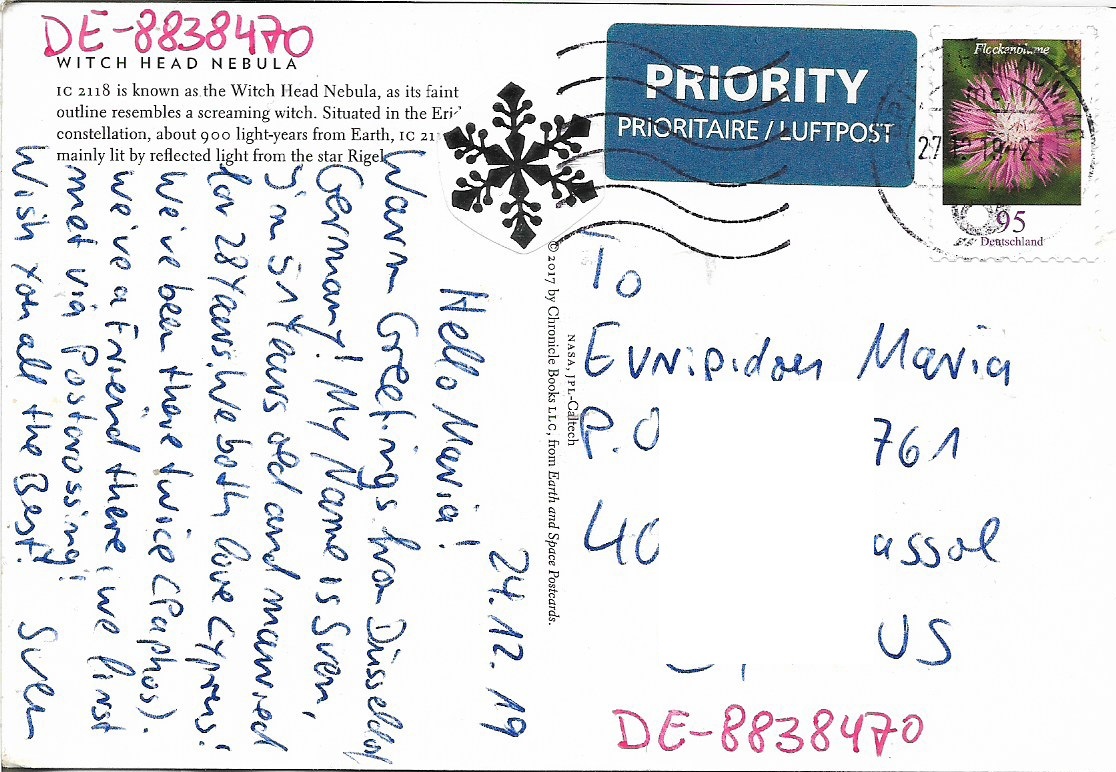 DE-8838470
WITCH HEAD NEBULA
IC 2118 is known as the Witch Head Nebula, as its faint
outline resembles a screaming witch. Situated in the Erid
constellation, about 900 light-years from Earth, IC 21
mainly lit by reflected light from the star Rigel
24.12.19
Hello Maria!
Warm Greetings from Düsseldorf
Germany! My Name is Sven,
I'm 51 Years old and married
for 28 Years. We both love Cyprus!
We've been there twice (Paphos).
We've a Friend there, we first
met via Postcrossing!
Wish you all the Best!
Sven
© 2017 by Chronicle Books LLC, from Earth and Space Postcards.
NASA, JPL-Caltech
PRIORITY
PRIORITAIRE / LUFTPOST
Flockenblume
95
Deutschland
27.12.19-21
To
Evripidou Maria
P.O 761
40 assol
US
DE-8838470